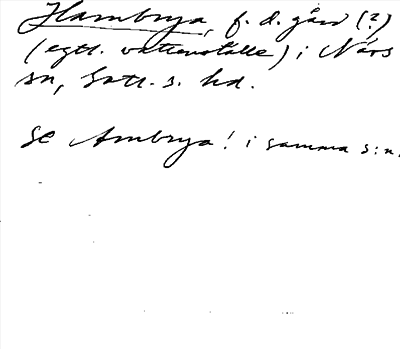 Hambrya, f. d. gård (?)
(egtl. vattenställe) i Närs
sn, Gotl. s. hd.
Se Ambrya! i samma s:n.